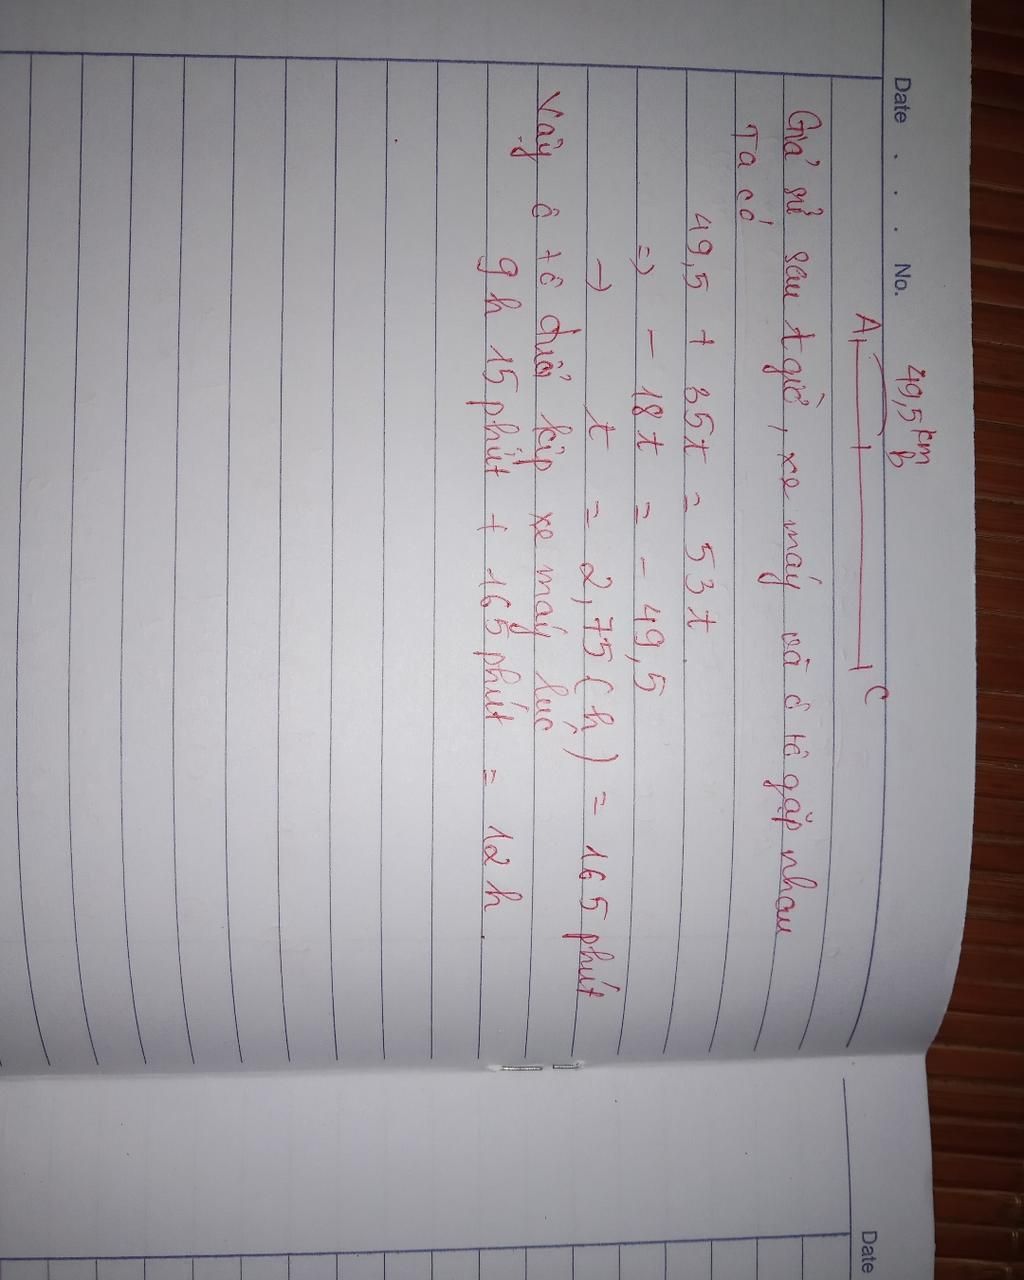 Date . . . No.
49,5 km
A B C
Giả sử sau t giờ, xe máy và ô tô gặp nhau
Ta có
49,5 + 35t = 53t
=> - 18t = - 49,5
=> t = 2,75 (h) = 165 phút
Vậy ô tô đuổi kịp xe máy lúc
9h 15 phút + 165 phút = 12h
Date